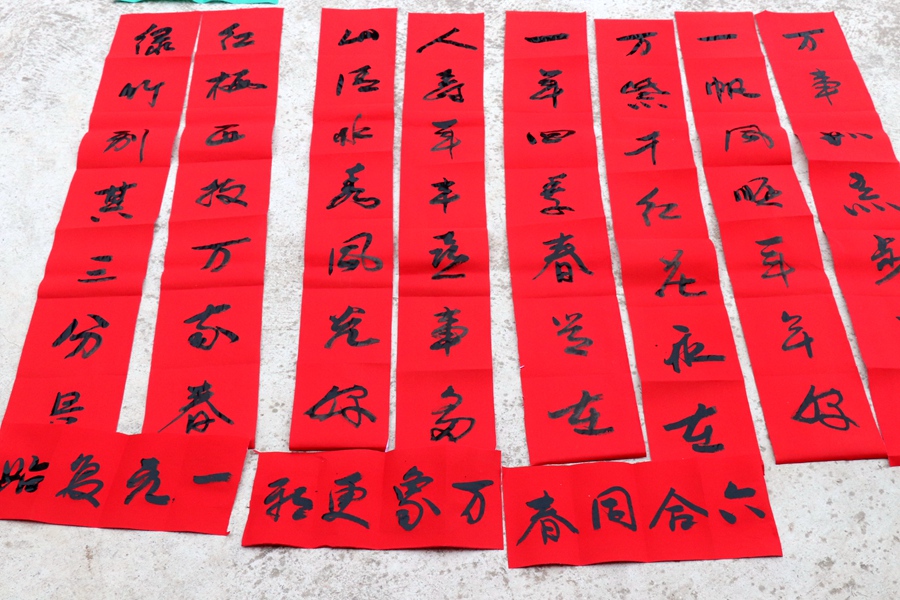 万事如意步
一帆风顺年年好
万紫千红花永在
一年四季春常在
人寿年丰喜事多
山清水秀风光好
红梅正报万家春
绿竹别其三分
六合同春
万象更新
一元复始